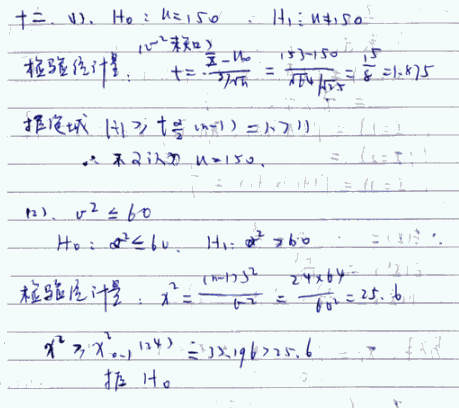 十二. (1). H₀: u=150 . H₁: u≠150
(σ²未知)
检验统计量: t = (x̄-u₀)/(s/√n) = (153-150)/(√64/√25) = 15/8 = 1.875
拒绝域 |t| ≥ t α/2 (n-1) = 1.711
∴ 可认为 u=150.
(2). σ² ≤ 60
H₀: σ² ≤ 60. H₁: σ² > 60
检验统计量: x² = (n-1)s²/σ² = 24×64/60² = 25.6
x² ≥ x²₀.₁(24) = 33.196 > 25.6
拒 H₀